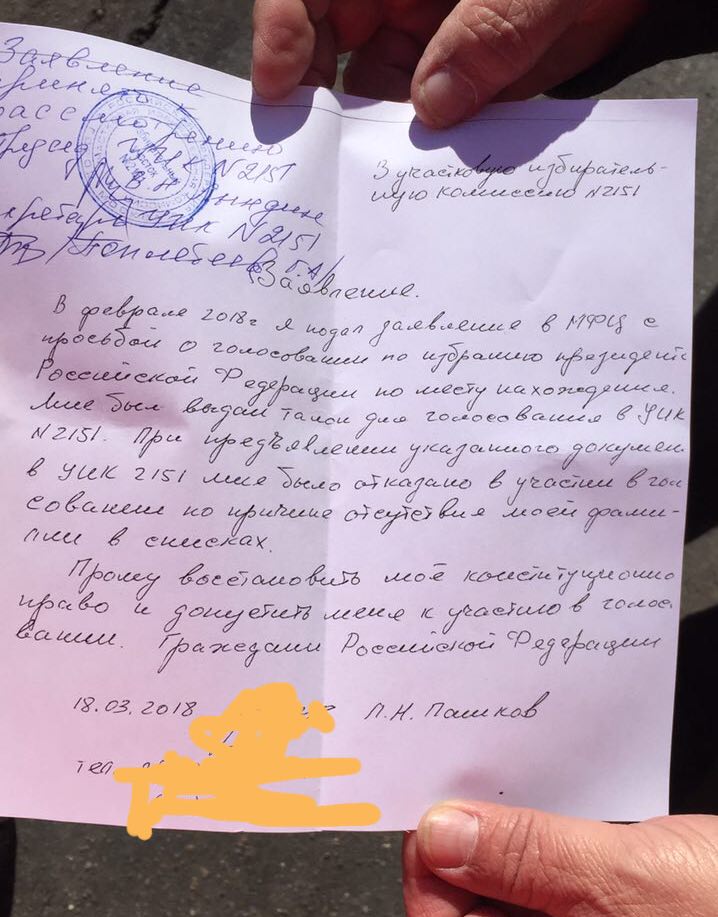 Заявление
принято к
рассмотрению
Пред УИК N 2151
УИК N 2151
В участковую избиратель-
ную комиссию N2151
Заявление.
В феврале 2018г я подал заявление в МФЦ с
просьбой о голосовании по избранию президент
Российской Федерации по месту нахождения.
Мне был выдан талон для голосования в УИК
N2151. При предъявлении указанного докумен
в УИК 2151 мне было отказано в участии в гол
совании по причине отсутствия моей фами-
лии в списках.
Прошу восстановить моё конституционно
право и допустить меня к участию в голос
вании. Гражданин Российской Федерации
18.03.2018 Л.Н. Пашков
тел.